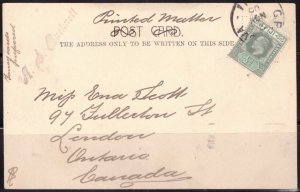 Printed Matter
POST CARD.
THE ADDRESS ONLY TO BE WRITTEN ON THIS SIDE
Fancy cards
preferred
Miss Ena Scott
97 Fullerton St
London
Ontario
Canada